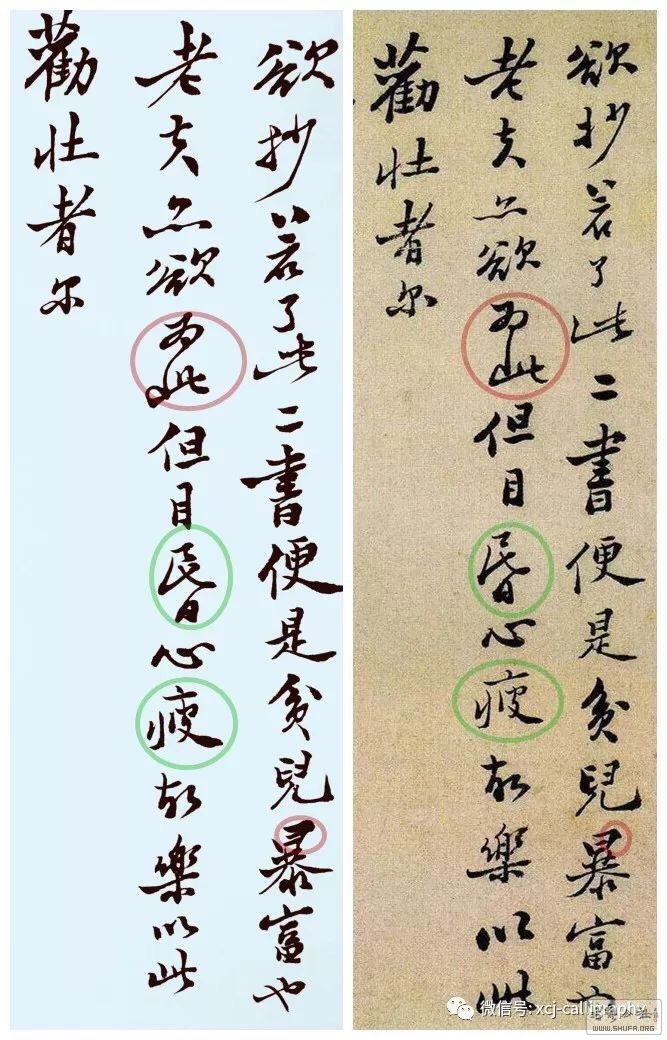 欲抄若了此二書便是貧兒暴富也
老夫亦欲為此但目昬心疲故樂以此
勸壯者尔
欲抄若了此二書便是貧兒暴富也
老夫亦欲為此但目昬心疲故樂以此
勸壯者尔
微信号: xcj-calligraphy
WWW.SHUFA.ORG